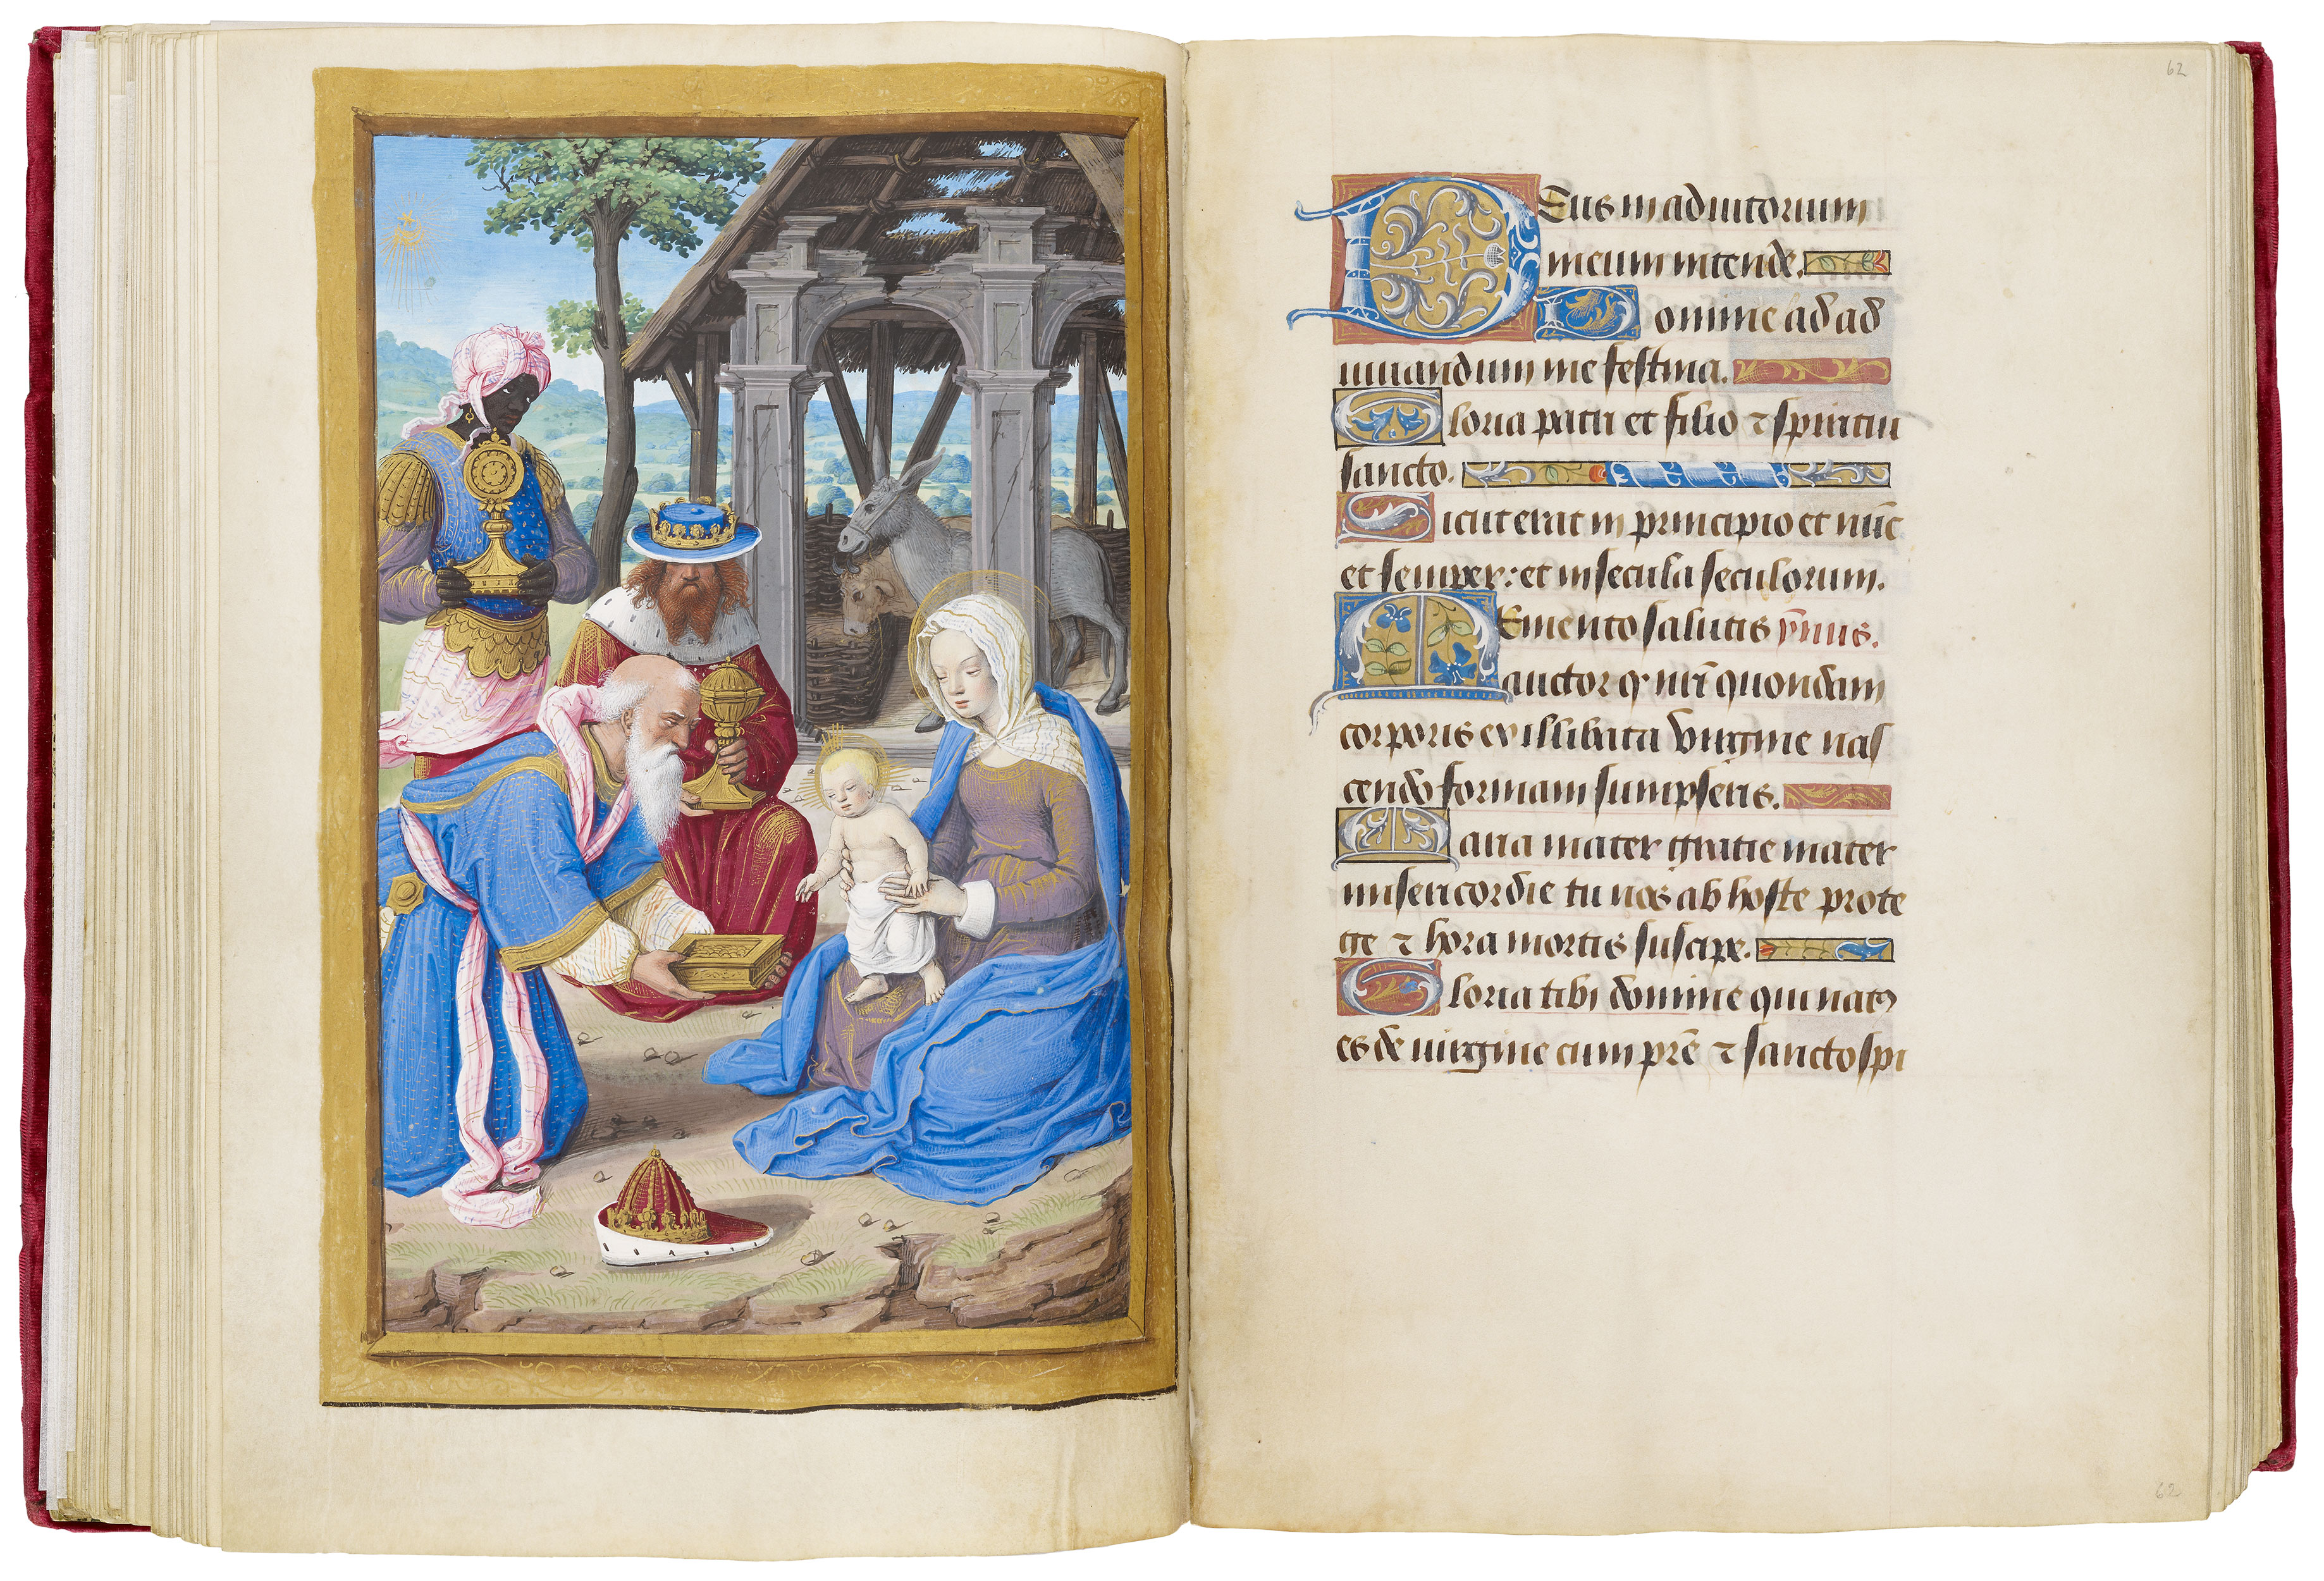 62
Deus in adiutorium
meum intende.
Domine ad ad
iuuandum me festina.
Gloria patri et filio ⁊ spiritui
sancto.
Sicut erat in principio et nūc
et semper: et in secula seculorum.
Memento salutis ymnus.
auctor q nr̄i quondam
corporis ex illibata virgine nas
cendo formam sumpseris.
Maria mater gratie mater
misericordie tu nos ab hoste prote
ge ⁊ hora mortis suscipe.
Gloria tibi domine qui natꝰ
es de uirgine cum pr̄e ⁊ sancto spi
62